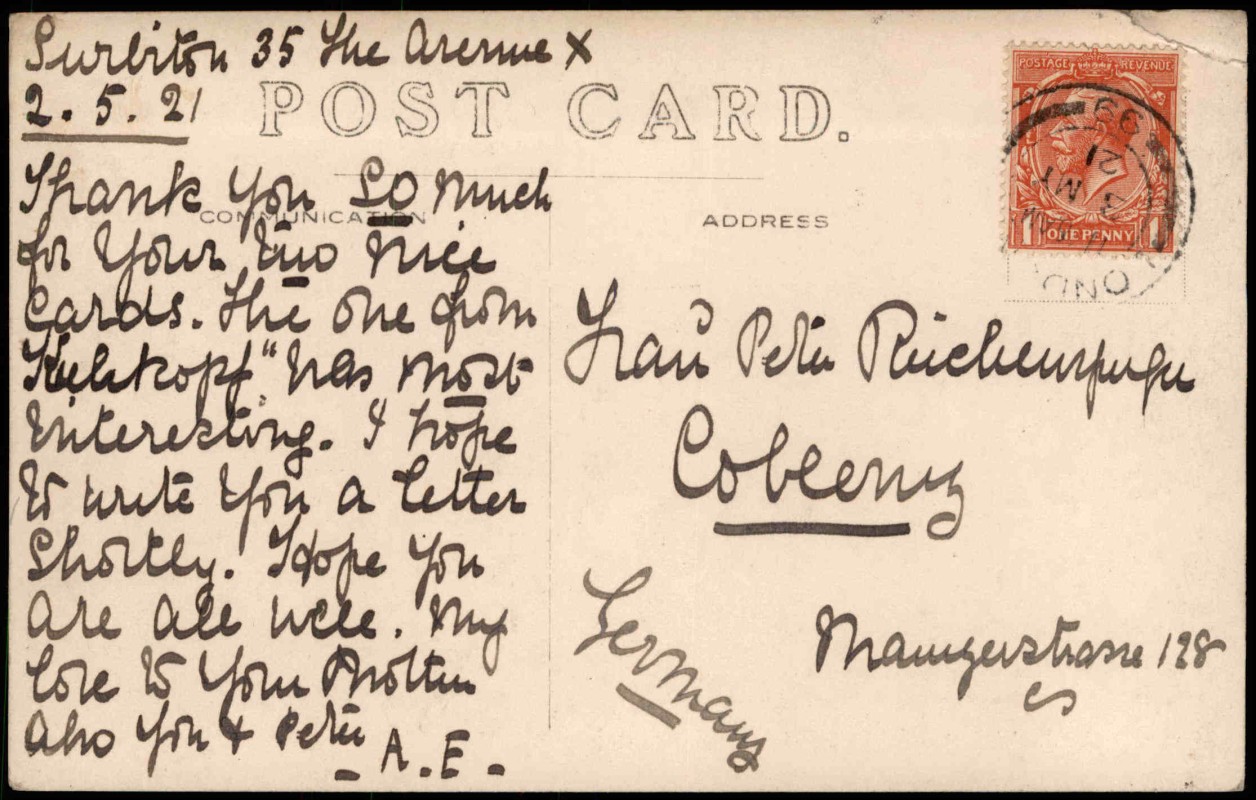 Surbiton 35 The Avenue X
2. 5. 21
POST CARD.
Thank you SO much
COMMUNICATION
for your two nice
cards. The one from
"Kuhkopf" was most
interesting. I hope
to write you a letter
shortly. Hope you
are all well. My
love to your Mother
also you & Peter
- A. E -
ADDRESS
POSTAGE REVENUE
1 ONE PENNY 1
99
3 MY
21
Frau Peter Reichensperger
Coblenz
Germany
Mainzerstrasse 128